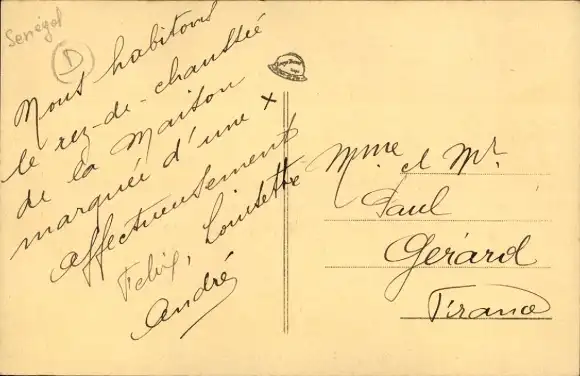 Sénégal
D
Nous habitons
le rez-de-chaussée
de la Maison
marquée d'une x
affectueusement
Félix, Louisette
André
Mme et Mr
Paul
Gérard
France